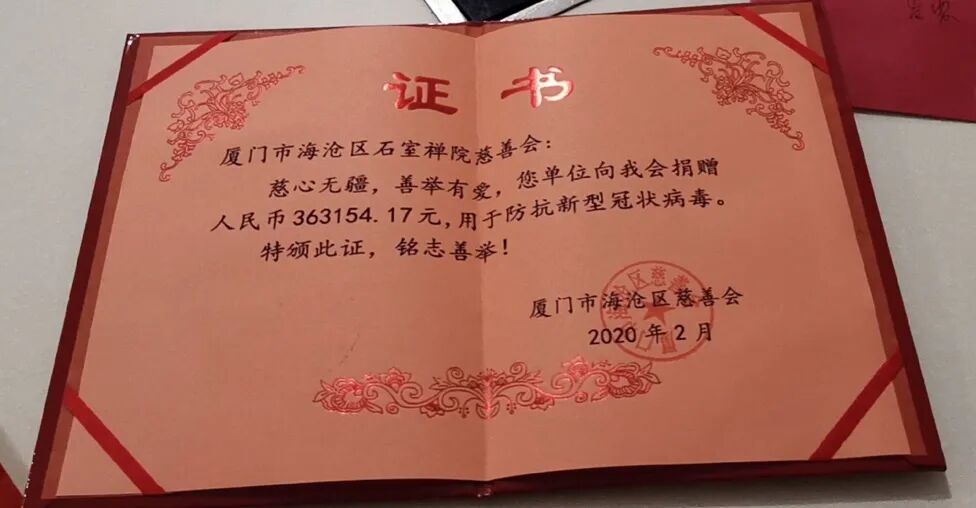 证书
厦门市海沧区石室禅院慈善会：
慈心无疆，善举有爱，您单位向我会捐赠
人民币363154.17元，用于防抗新型冠状病毒。
特颁此证，铭志善举！
厦门市海沧区慈善会
2020年2月